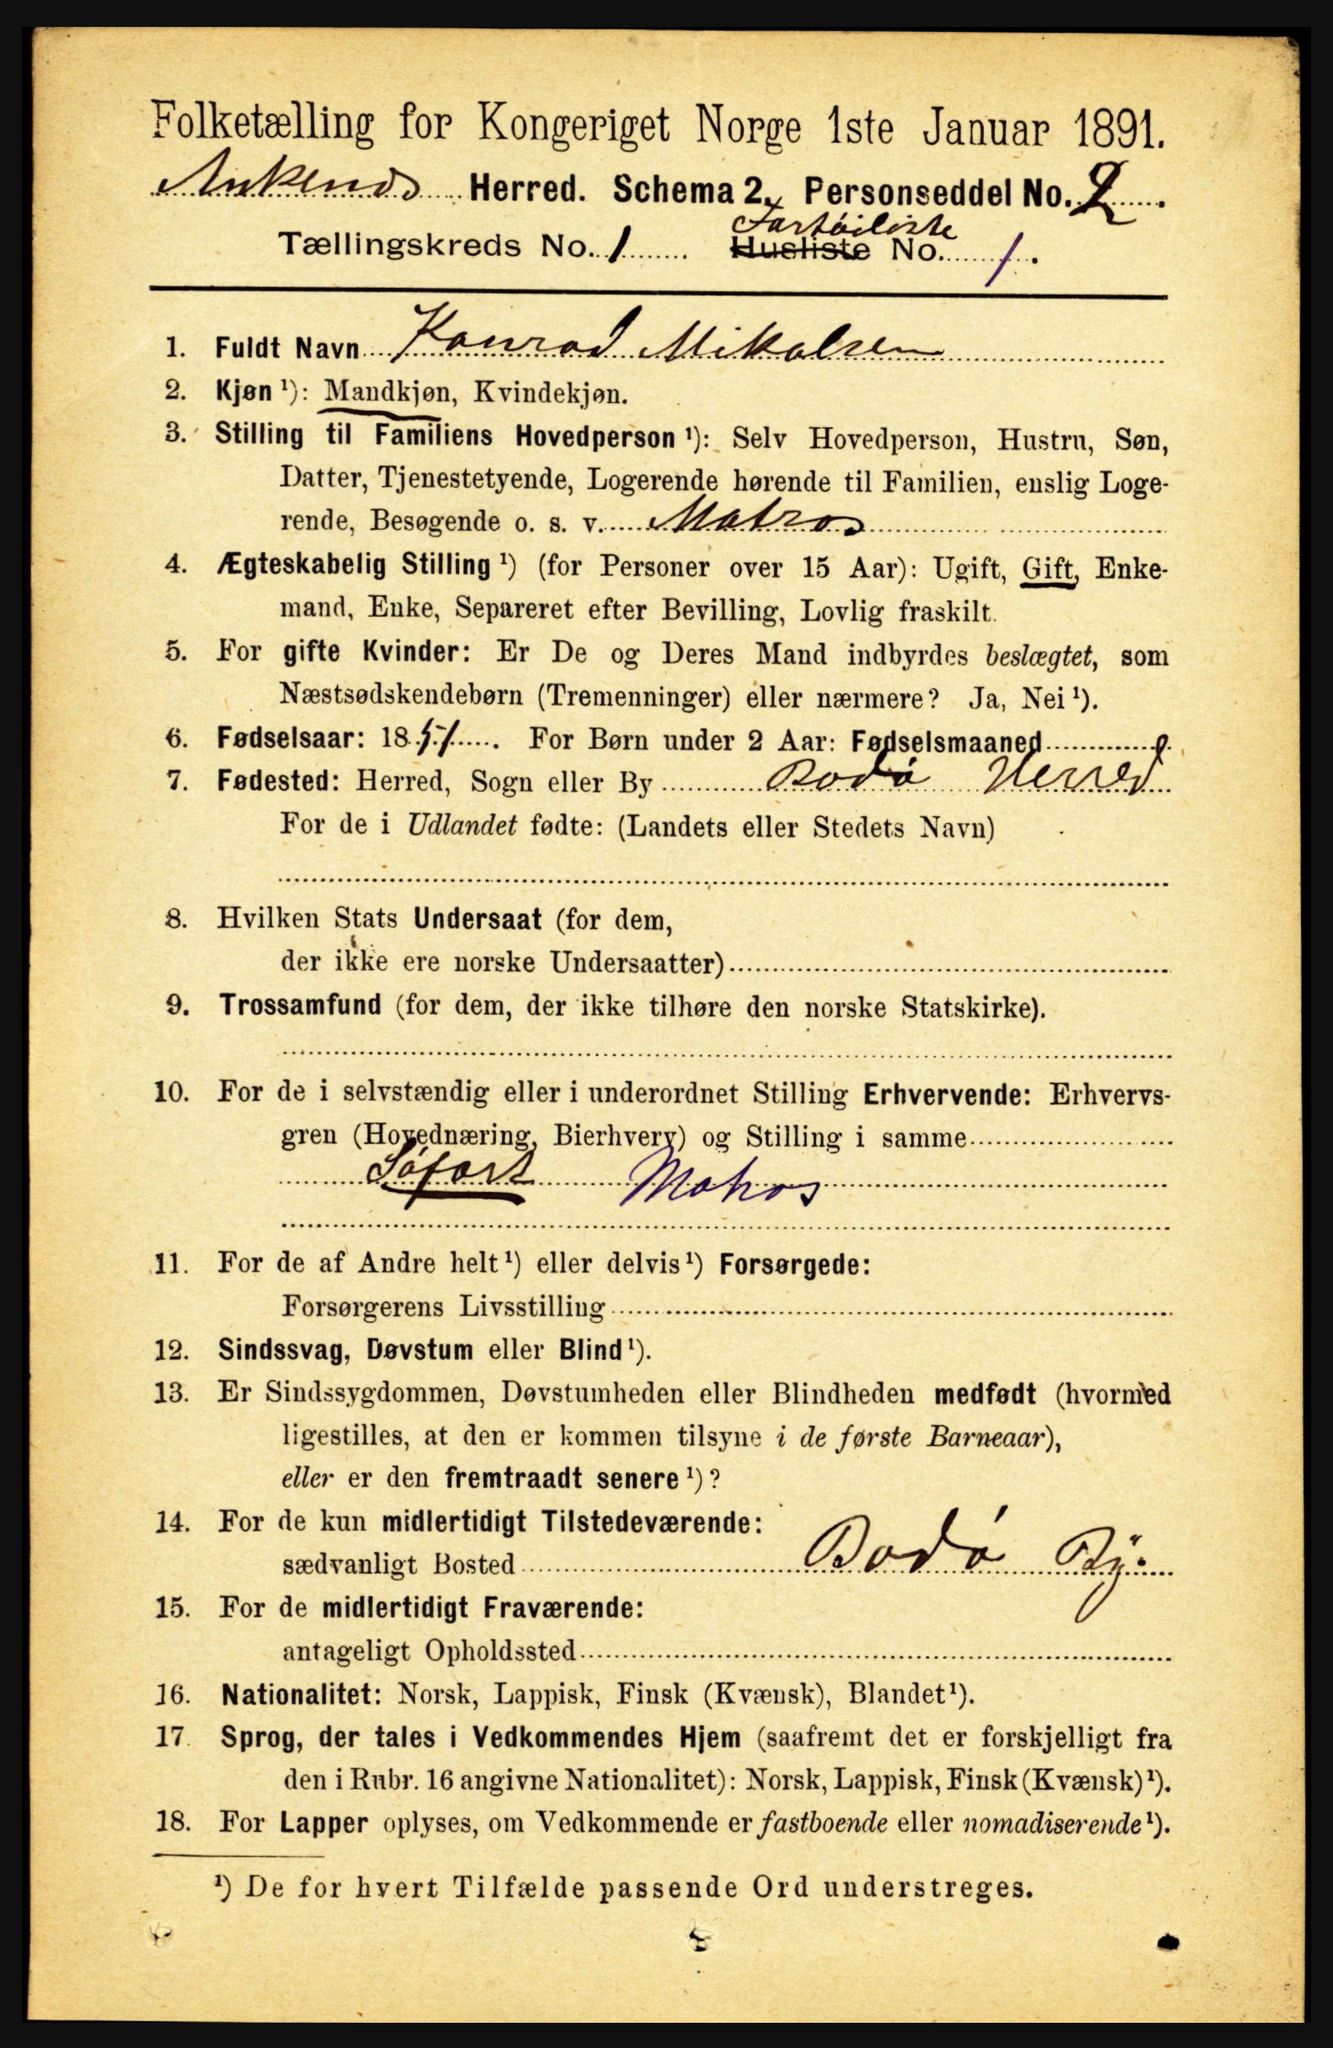 Folketælling for Kongeriget Norge 1ste Januar 1891.
Ankenes Herred. Schema 2. Personseddel No. 2.
Fartøiliste
Tællingskreds No. 1 Husliste No. 1.
1. Fuldt Navn Konrad Mikalsen
2. Kjøn ¹): Mandkjøn, Kvindekjøn.
3. Stilling til Familiens Hovedperson ¹): Selv Hovedperson, Hustru, Søn,
Datter, Tjenestetyende, Logerende hørende til Familien, enslig Loge-
rende, Besøgende o. s. v. Matros
4. Ægteskabelig Stilling ¹) (for Personer over 15 Aar): Ugift, Gift, Enke-
mand, Enke, Separeret efter Bevilling, Lovlig fraskilt.
5. For gifte Kvinder: Er De og Deres Mand indbyrdes beslægtet, som
Næstsødskendebørn (Tremenninger) eller nærmere? Ja, Nei ¹).
6. Fødselsaar: 1851. For Børn under 2 Aar: Fødselsmaaned
7. Fødested: Herred, Sogn eller By Bodø Herred
For de i Udlandet fødte: (Landets eller Stedets Navn)
8. Hvilken Stats Undersaat (for dem,
der ikke ere norske Undersaatter)
9. Trossamfund (for dem, der ikke tilhøre den norske Statskirke).
10. For de i selvstændig eller i underordnet Stilling Erhvervende: Erhvervs-
gren (Hovednæring, Bierhverv) og Stilling i samme
Søfart Matros
11. For de af Andre helt ¹) eller delvis ¹) Forsørgede:
Forsørgerens Livsstilling
12. Sindssvag, Døvstum eller Blind ¹).
13. Er Sindssygdommen, Døvstumheden eller Blindheden medfødt (hvormed
ligestilles, at den er kommen tilsyne i de første Barneaar),
eller er den fremtraadt senere ¹)?
14. For de kun midlertidigt Tilstedeværende:
sædvanligt Bosted Bodø By.
15. For de midlertidigt Fraværende:
antageligt Opholdssted
16. Nationalitet: Norsk, Lappisk, Finsk (Kvænsk), Blandet ¹).
17. Sprog, der tales i Vedkommendes Hjem (saafremt det er forskjelligt fra
den i Rubr. 16 angivne Nationalitet): Norsk, Lappisk, Finsk (Kvænsk) ¹).
18. For Lapper oplyses, om Vedkommende er fastboende eller nomadiserende ¹).
¹) De for hvert Tilfælde passende Ord understreges.